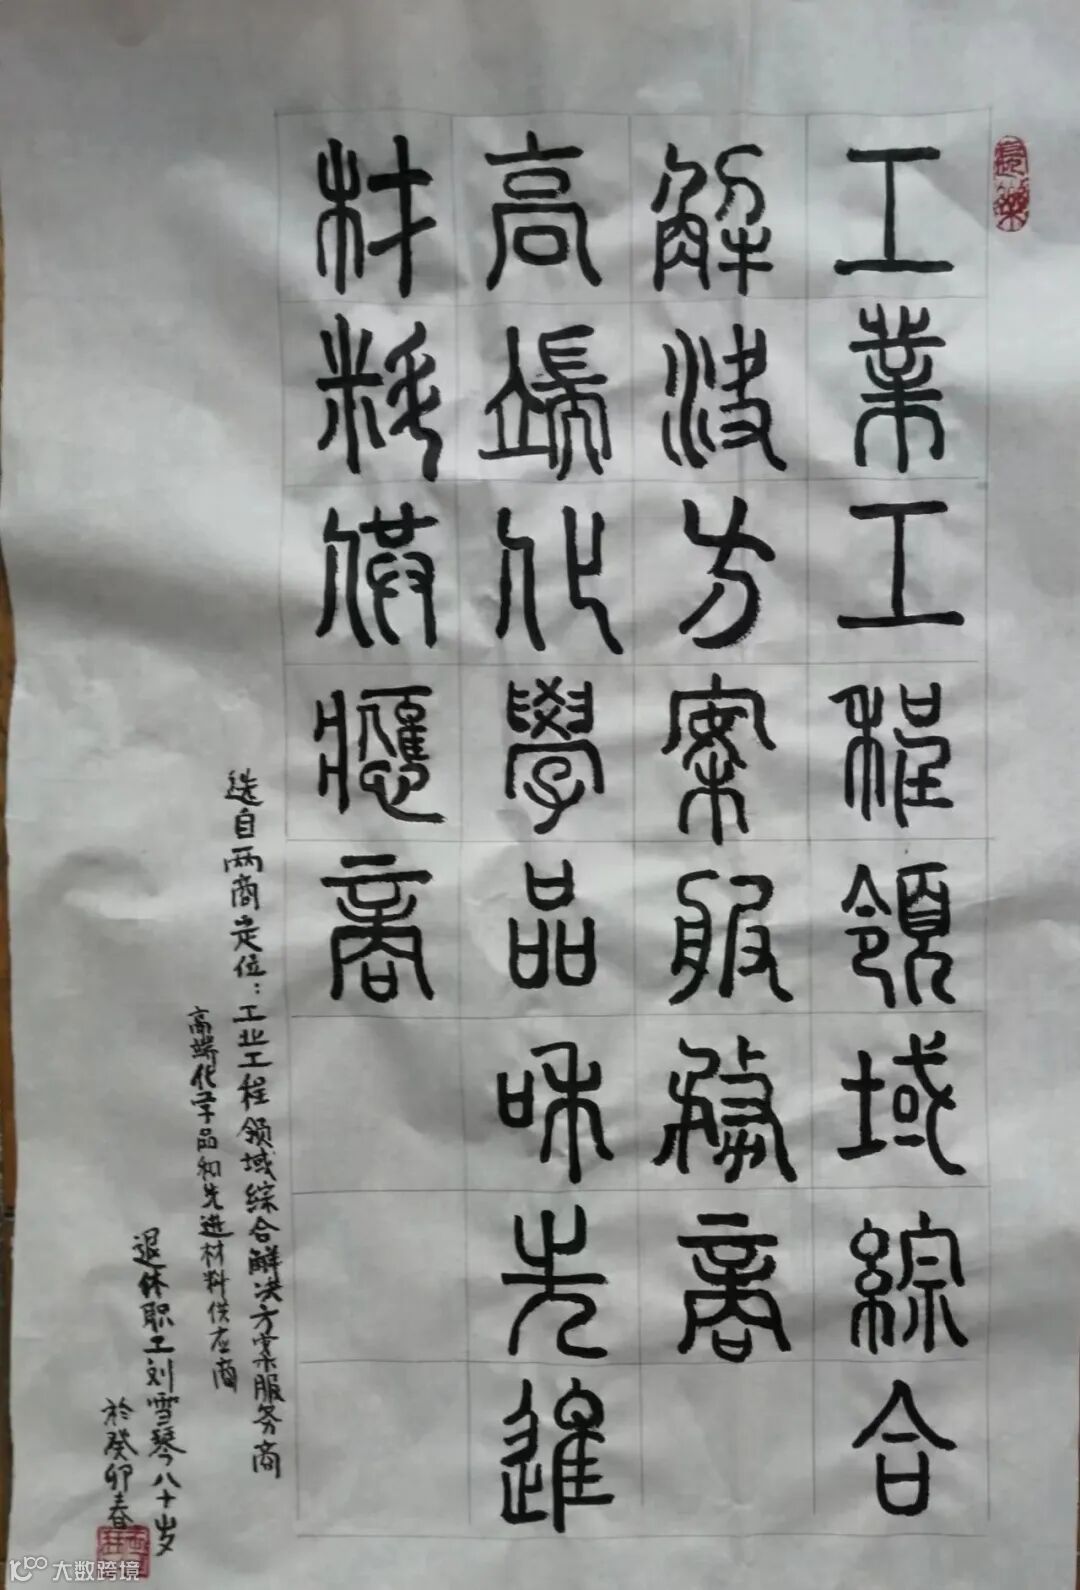 工業工程領域綜合
解決方案服務商
高端化學品和先進
材料供應商
选自两商定位：工业工程领域綜合解决方案服务商
高端化学品和先进材料供应商
退休职工刘雪琴八十岁
於癸卯春
長樂
大数跨境